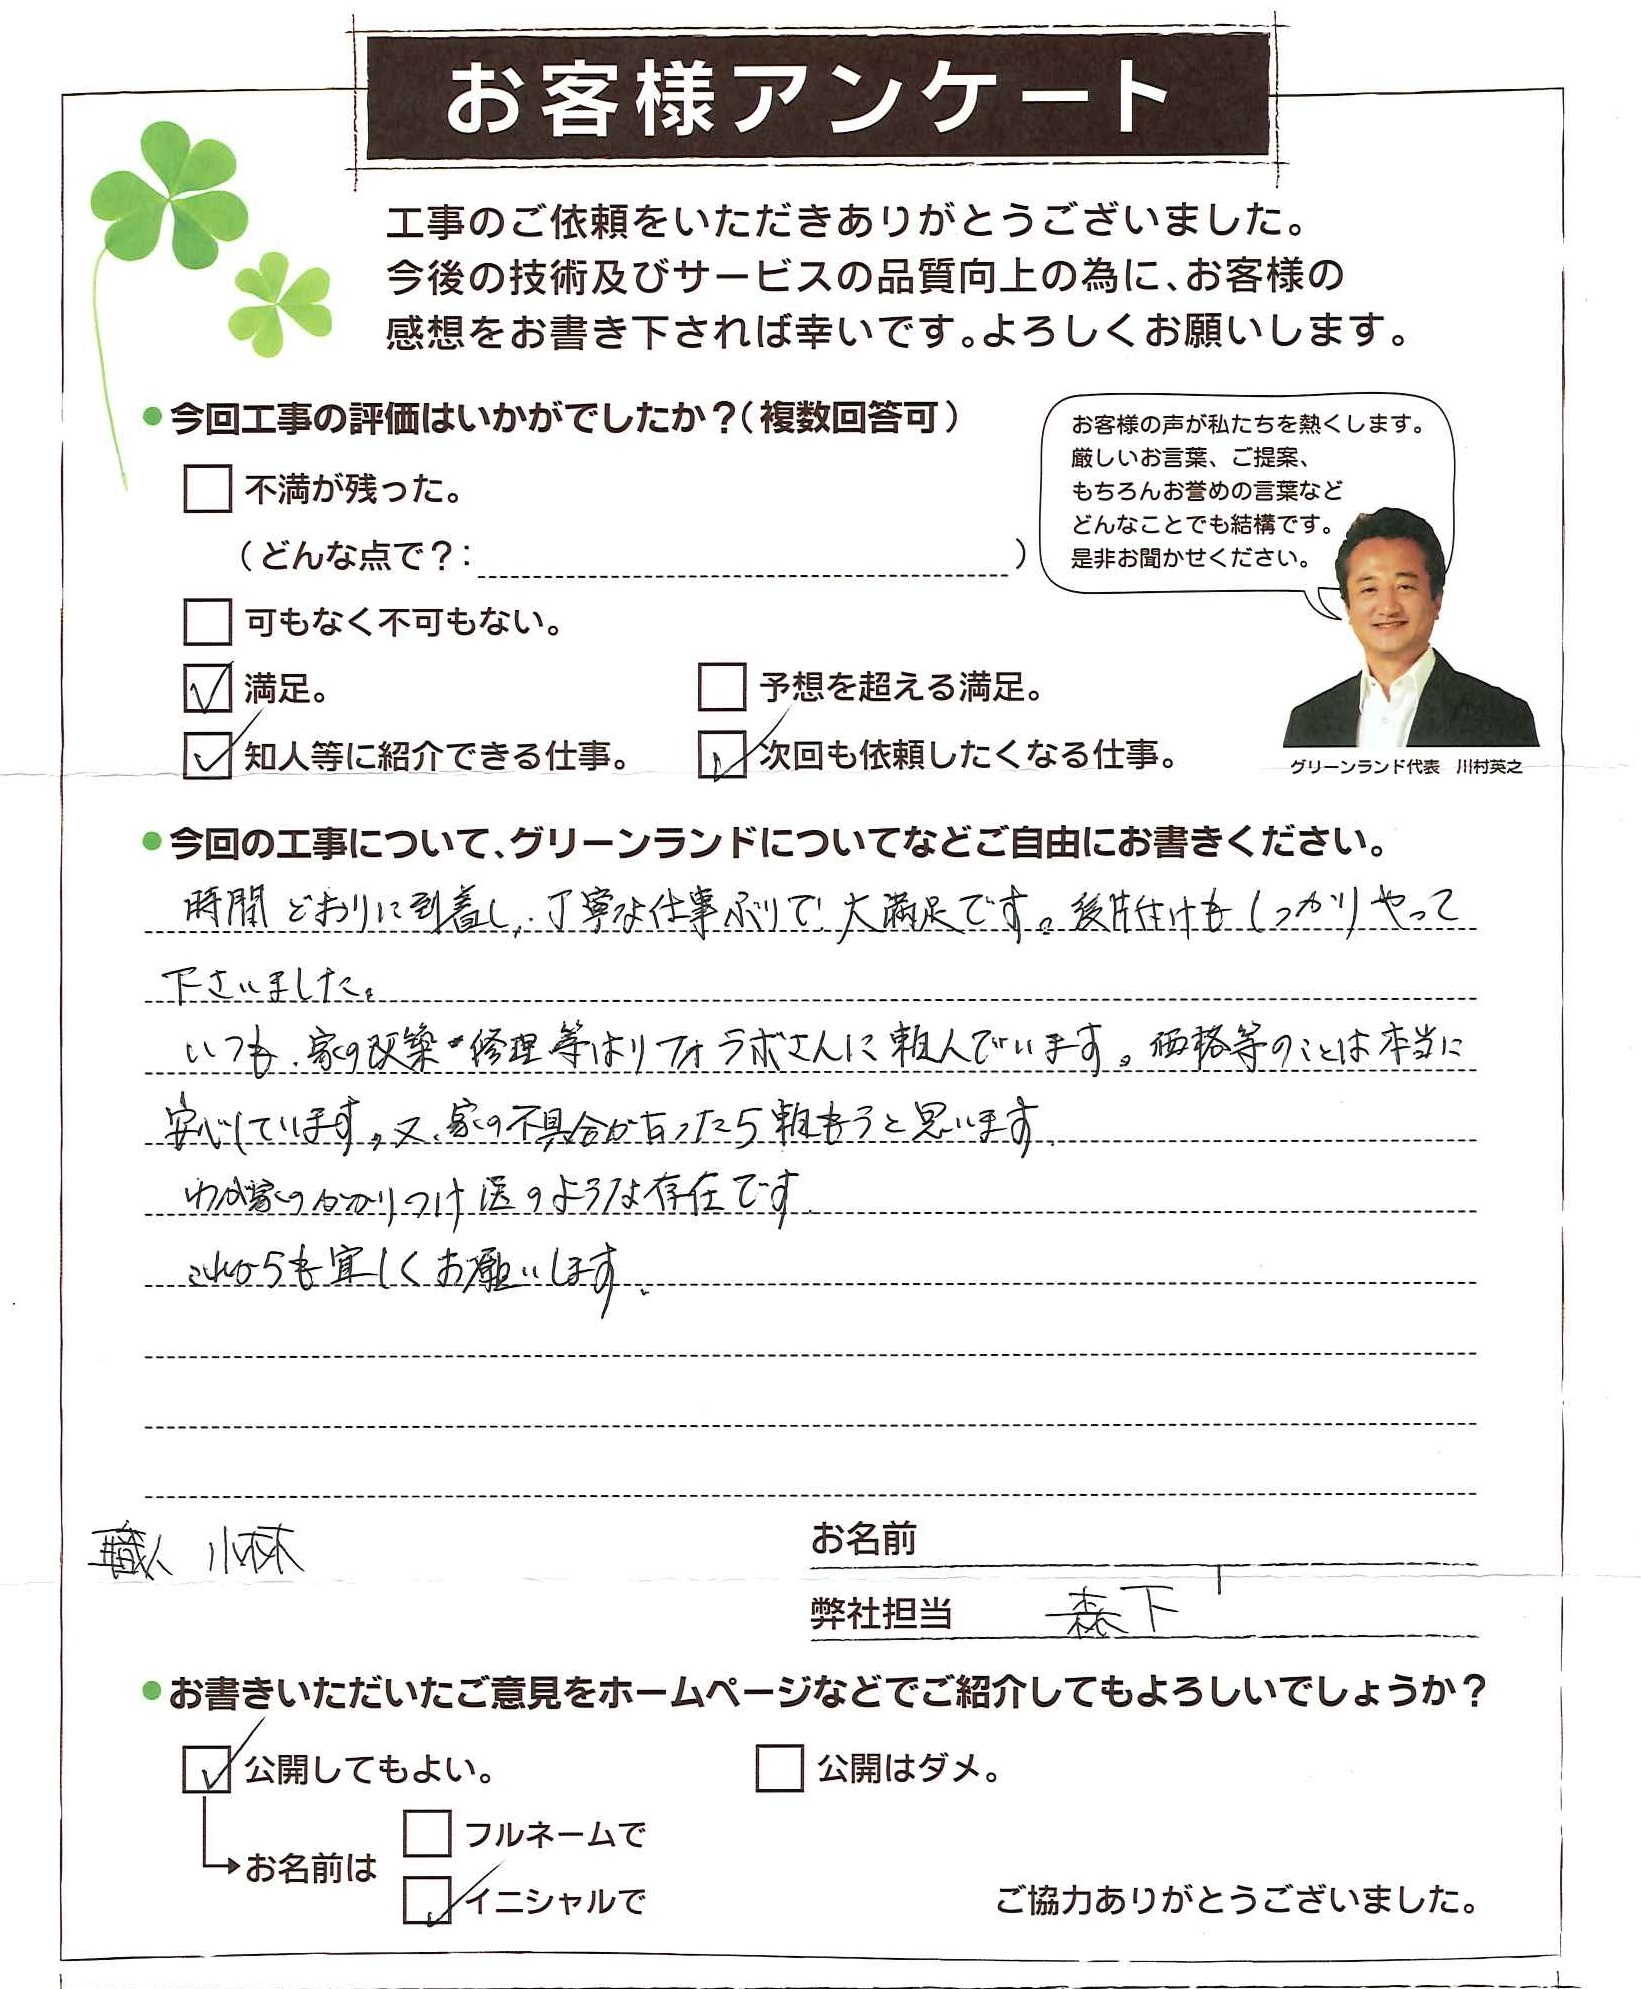 お客様アンケート
工事のご依頼をいただきありがとうございました。
今後の技術及びサービスの品質向上の為に、お客様の
感想をお書き下されば幸いです。よろしくお願いします。
●今回工事の評価はいかがでしたか？（複数回答可）
不満が残った。
（どんな点で？：　）
可もなく不可もない。
満足。
予想を超える満足。
知人等に紹介できる仕事。
次回も依頼したくなる仕事。
お客様の声が私たちを熱くします。
厳しいお言葉、ご提案、
もちろんお誉めの言葉など
どんなことでも結構です。
是非お聞かせください。
グリーンランド代表　川村英之
●今回の工事について、グリーンランドについてなどご自由にお書きください。
時間どおりに到着し、丁寧な仕事ぶりで大満足です。後片付けもしっかりやって
下さいました。
いつも、家の改築・修理等はリフォラボさんに頼んでいます。価格等のことは本当に
安心しています。又、家の不具合が有ったら頼もうと思います。
わが家のかかりつけ医のような存在です。
これからも宜しくお願いします。
職人 小林
お名前
弊社担当 森下
●お書きいただいたご意見をホームページなどでご紹介してもよろしいでしょうか？
公開してもよい。
公開はダメ。
お名前は
フルネームで
イニシャルで
ご協力ありがとうございました。